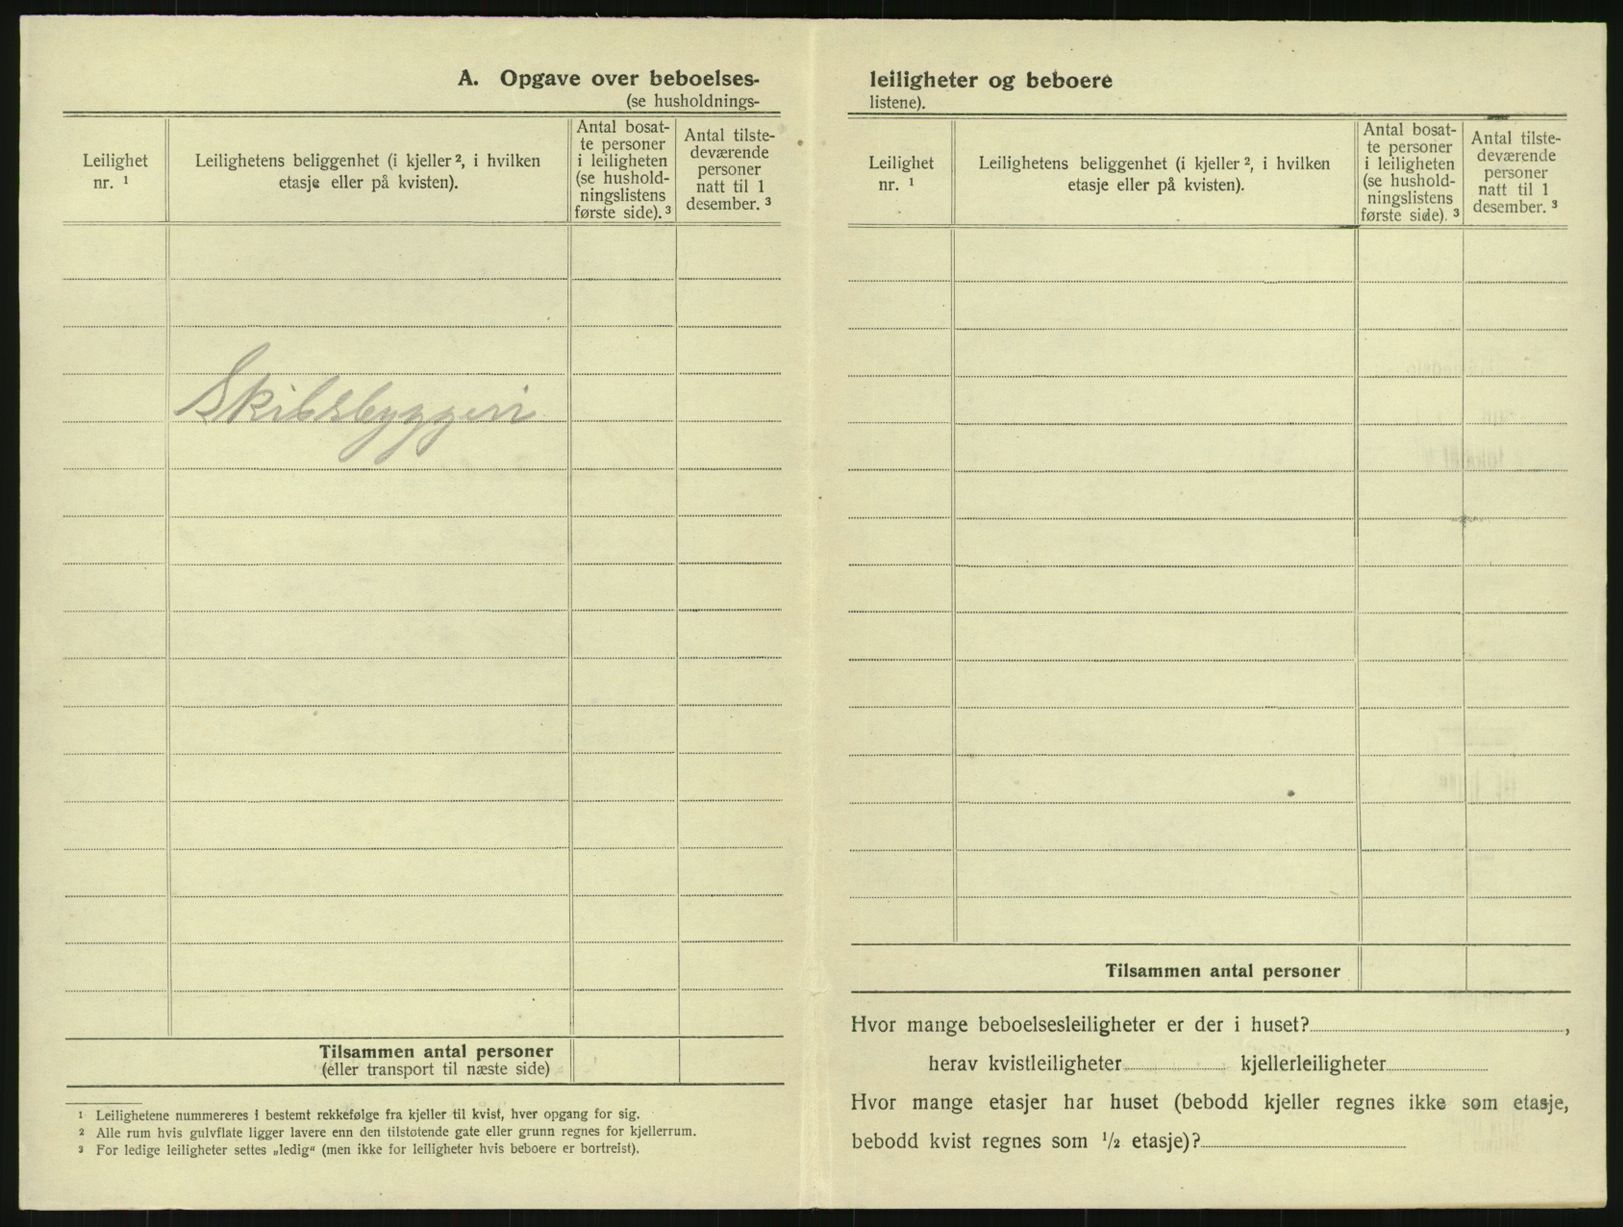 A. Opgave over beboelses-
(se husholdnings-
Leilighet
nr. ¹
Leilighetens beliggenhet (i kjeller ², i hvilken
etasje eller på kvisten).
Antal bosat-
te personer
i leiligheten
(se hushold-
ningslistens
første side). ³
Antal tilste-
deværende
personer
natt til 1
desember. ³
Skibsbyggeri
Tilsammen antal personer
(eller transport til næste side)
¹ Leilighetene nummereres i bestemt rekkefølge fra kjeller til kvist, hver opgang for sig.
² Alle rum hvis gulvflate ligger lavere enn den tilstøtende gate eller grunn regnes for kjellerrum.
³ For ledige leiligheter settes „ledig“ (men ikke for leiligheter hvis beboere er bortreist).
leiligheter og beboere
listene).
Leilighet
nr. ¹
Leilighetens beliggenhet (i kjeller ², i hvilken
etasje eller på kvisten).
Antal bosat-
te personer
i leiligheten
(se hushold-
ningslistens
første side). ³
Antal tilste-
deværende
personer
natt til 1
desember. ³
Tilsammen antal personer
Hvor mange beboelsesleiligheter er der i huset?,
herav kvistleiligheter kjellerleiligheter
Hvor mange etasjer har huset (bebodd kjeller regnes ikke som etasje,
bebodd kvist regnes som ½ etasje)?